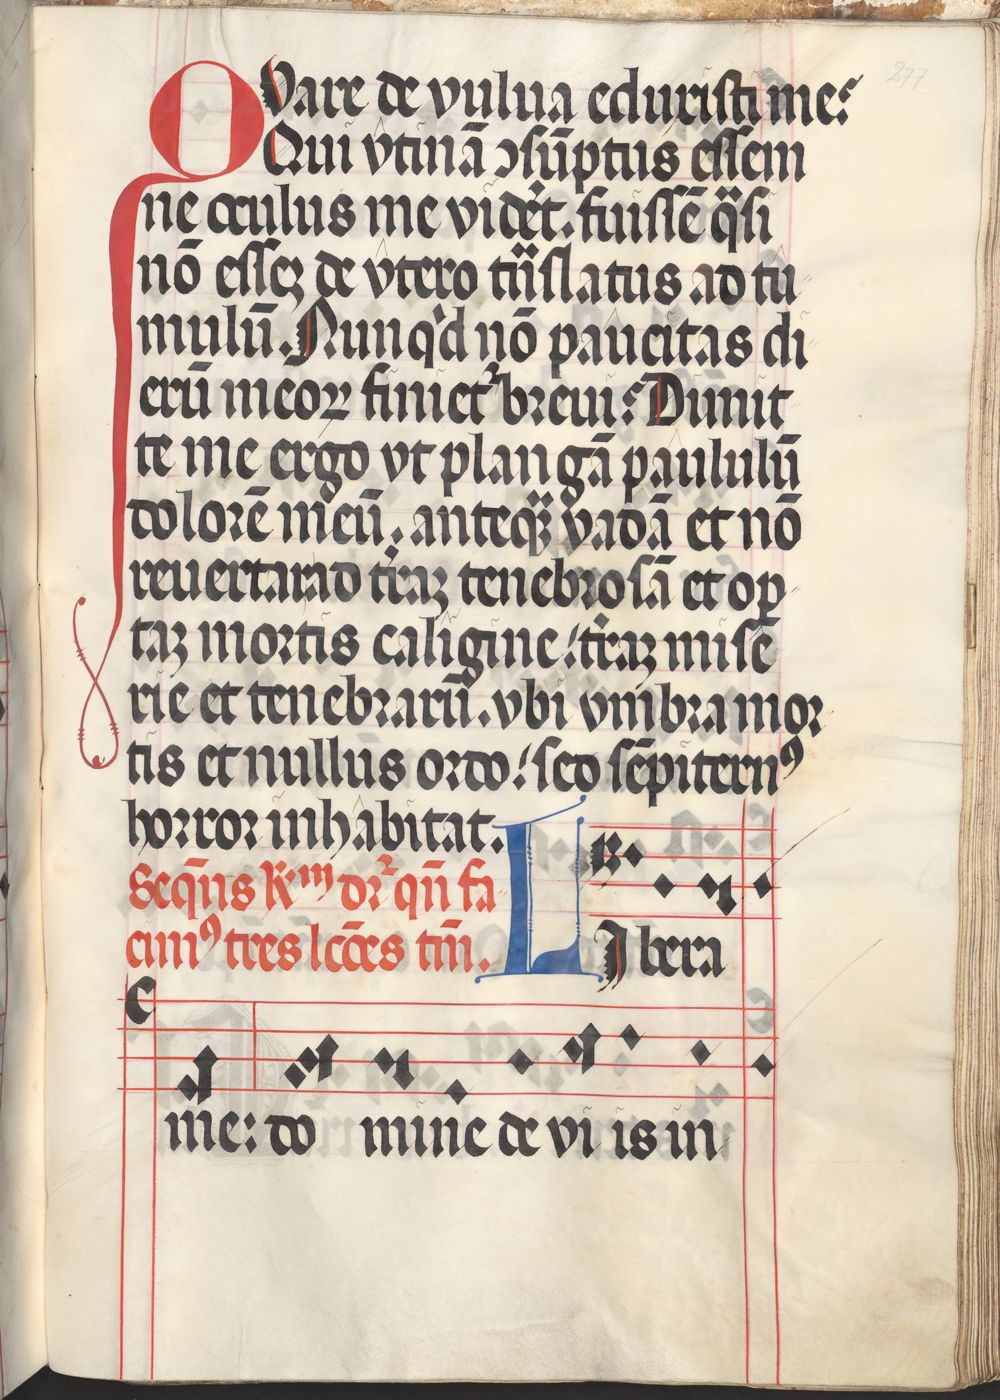 277
QUare de vulua eduxisti me?
Qui vtinā ↄsūptus essem
ne oculus me videret. fuissē qͣsi
nō esseꝫ de vtero trͣslatus ad tu
mulū. Nunqͥd nō paucitas di
erū meoꝝ finiet᷑ breui? Dimit
te me ergo vt plangā paululū
dolorē meū. anteqͣꝫ vadā et nō
reuertar ad t̄raꝫ tenebrosā et op
taꝫ mortis caligine: t̄raꝫ mise
rie et tenebrarū. vbi vmbra mor
tis et nullus ordo: sed sēpiternꝰ
horror inhabitat.
Sequēs R̄m dr̄ qn̄ fa
cimꝰ tres lc̄ōes tm̄.
LIbera
me: do mine de vi is in